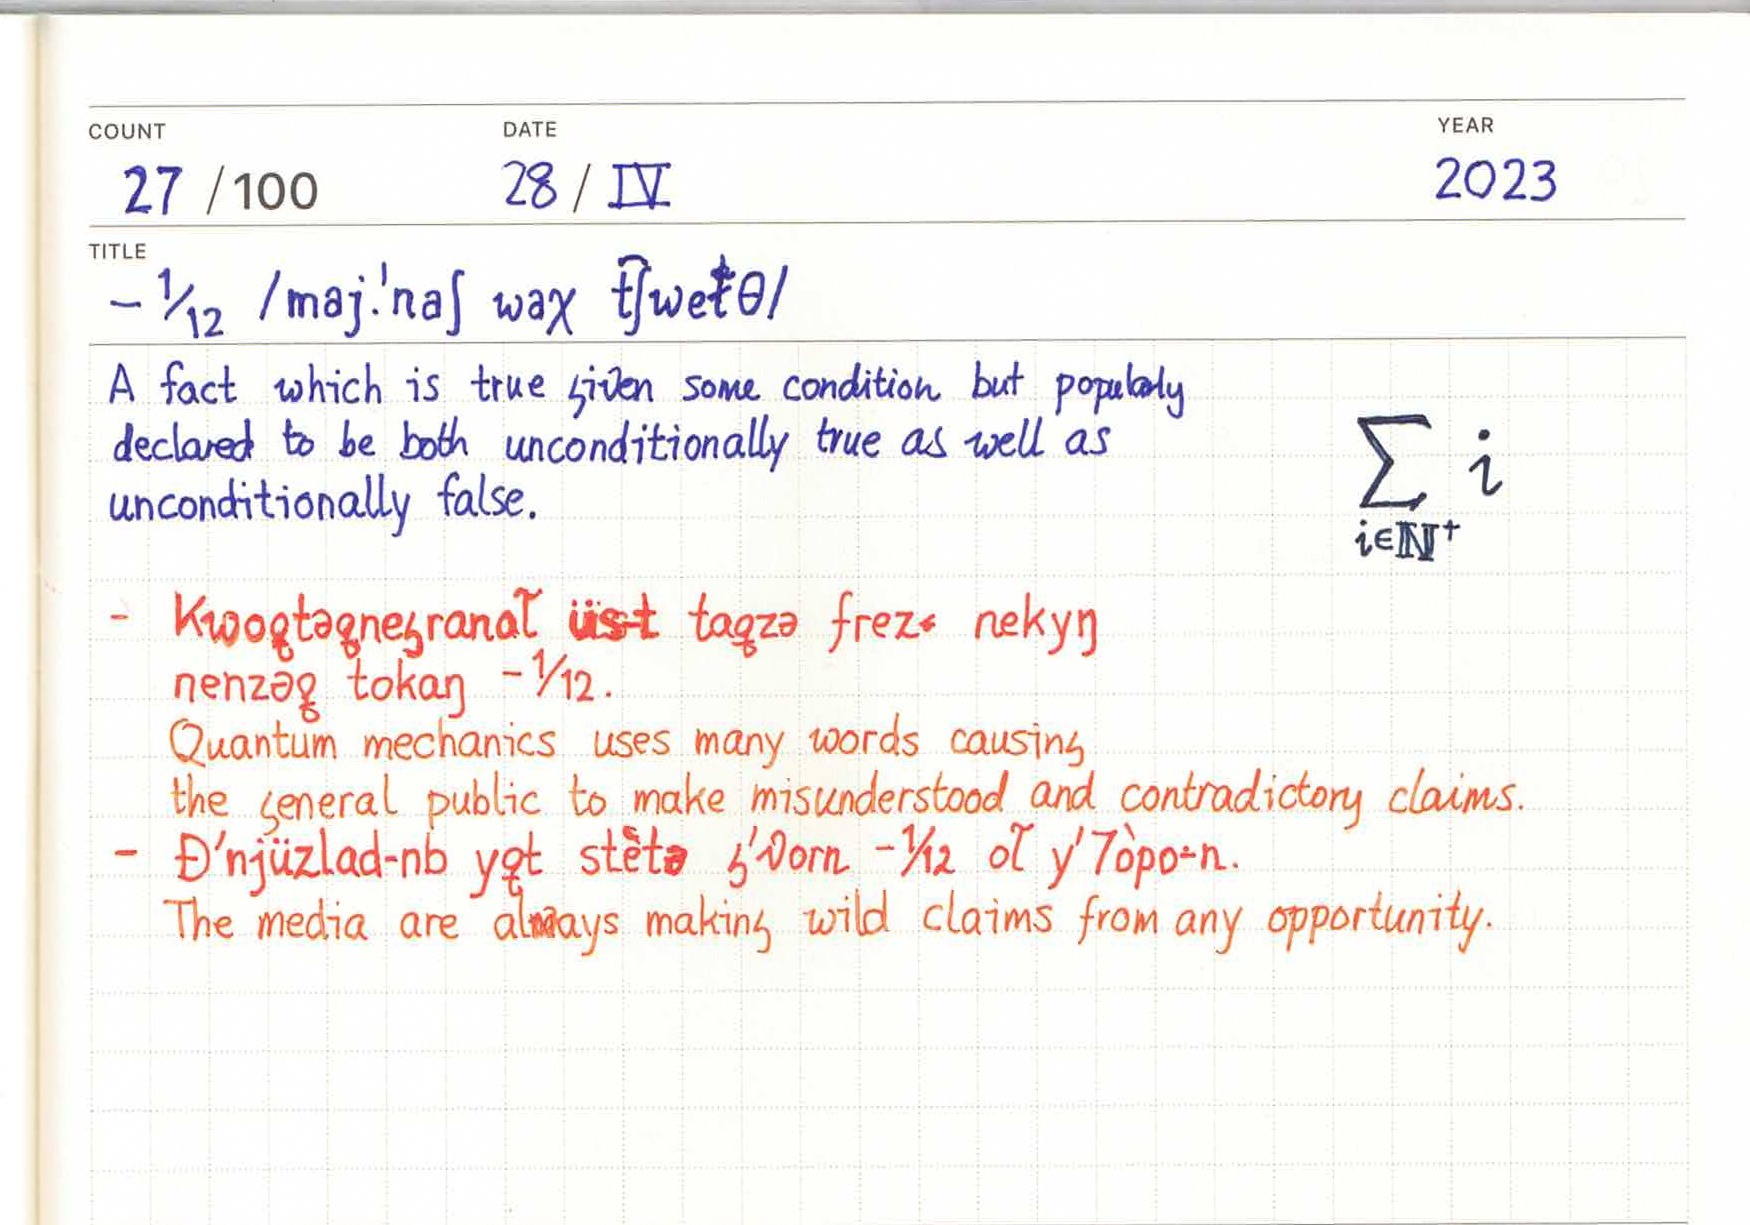 COUNT DATE YEAR
27 /100 28 / IV 2023
TITLE
- 1/12 /maj.ˈnaʃ waχ t͡ʃweɫθ/
A fact which is true given some condition but popularly
declared to be both unconditionally true as well as
unconditionally false.
∑ i
i∈ℕ⁺
- üst frez nekyŋ
tokaŋ -1/12.
Quantum mechanics uses many words causing
the general public to make misunderstood and contradictory claims.
- Đ'njüzlad-nb -1/12
The media are always making wild claims from any opportunity.